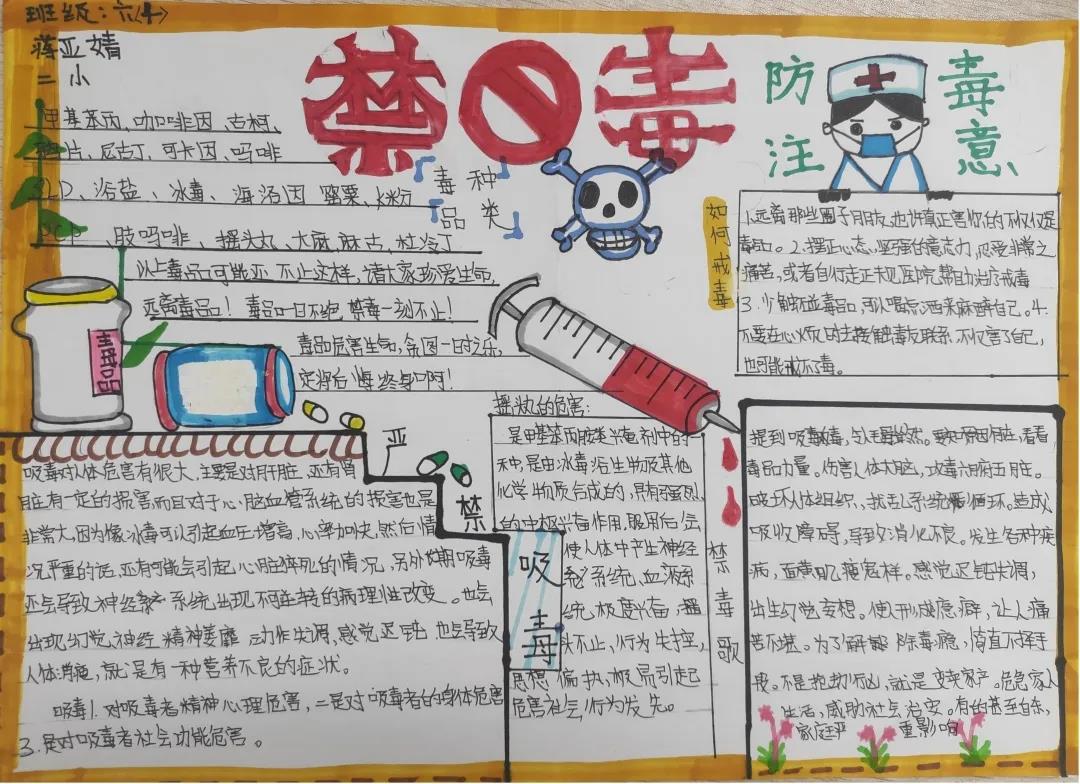 班级:六(4)
蒋亚婧
二小
禁毒
防毒
注意
甲基苯丙、咖啡因、古柯、
片、尼古丁、可卡因、吗啡
SLD、浴盐、冰毒、海洛因、罂粟、火粉
PCP、肢吗啡、摇头丸、大麻、麻古、杜冷丁
『毒品
种类』
以上毒品可能还不止这样,请大家珍爱生命,
远离毒品!毒品一日不绝,禁毒一刻不止!
毒品危害生命,贪图一时之乐,
定将后悔终身啊!
毒品
如何戒毒
1.远离那些圈子朋友,也许真正害你的不仅仅是
毒品。2.摆正心态,坚强的意志力,忍受非常之
痛苦,或者自行走正规医院帮助治疗戒毒
3.少触碰毒品,可以喝点酒来麻醉自己。4.
不要在心烦时去接触毒友联系,不仅害了自己,
也可能戒不了毒。
吸毒对人体危害有很大,主要是对肝脏,还有肾
脏有一定的损害而且对于心脑血管系统的损害也是
非常大,因为像冰毒可以引起血压增高,心率加快,然后情
况严重的话,还有可能会引起心脏猝死的情况,另外长期吸毒
还会导致神经系统出现不可逆转的病理性改变。也会
出现幻觉,神经精神萎靡,动作失调,感觉迟钝,也会导致
人体消瘦,就是有一种营养不良的症状。
吸毒1.对吸毒者精神心理危害,二是对吸毒者的身体危害
3.是对吸毒者社会功能危害。
严禁
吸毒
摇头丸的危害:
是甲基苯丙胺类兴奋剂中的一
种,是由冰毒浴生物及其他
化学物质合成的,具有强烈
的中枢兴奋作用,服用后会
使人体中产生神经
系统,血液系
统,极度兴奋,摇
头不止,行为失控,
思想偏执,极易引起
危害社会行为发先。
禁毒歌
提到吸毒贩毒,令人毛骨悚然。要知原因何在,看看
毒品力量。伤害人体大脑,攻毒六腑五脏。
破坏人体组织,扰乱系统循环,造成
吸收障碍,导致消化不良。发生各种疾
病,面黄肌瘦怎样。感觉迟钝失调,
出生幻觉妄想。使人形成瘾癖,让人痛
苦不堪。为了解除毒瘾,简直不择手
段。不是抢劫行凶,就是变卖家产。危急家人
生活,威胁社会治安。有的甚至自杀,
家庭严重影响